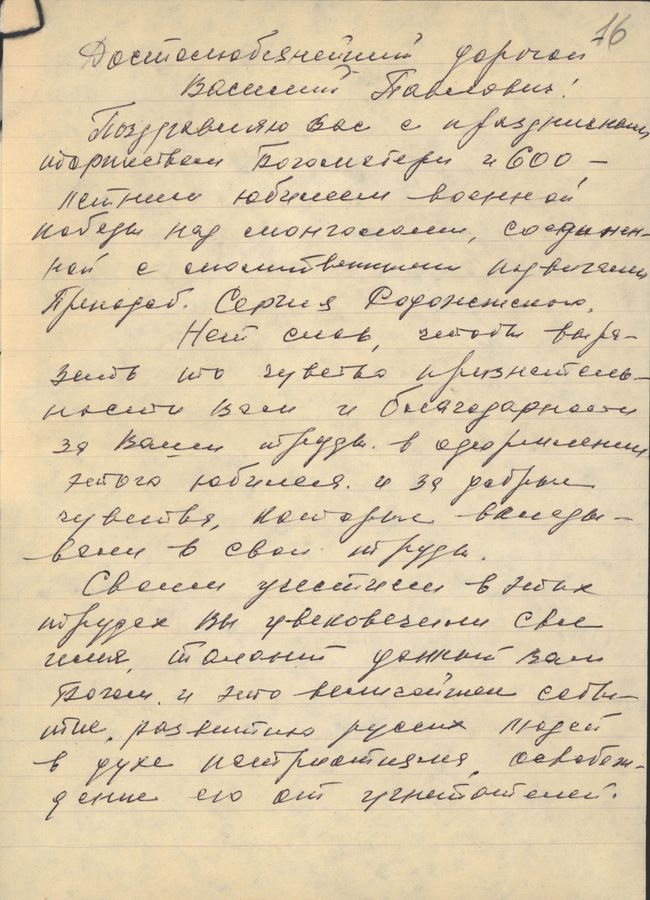 76
Достолюбезнейший дорогой
Василий Павлович!
Поздравляю Вас с праздничным
торжеством Богоматери и 600-
летним юбилеем военной
победы над монголами, соединен-
ной с молитвенными подвигами
Преподоб. Сергия Радонежского.
Нет слов, чтобы выра-
зить то чувство признатель-
ности Вам и благодарности
за Ваши труды в оформлении
этого юбилея и за добрые
чувства, которые вклады-
вали в свои труды.
Своим участием в этих
трудах Вы увековечили свое
имя, талант данный Вам
Богом и это величайшее собы-
тие, развитию русских людей
в духе патриотизма, освобож-
дение его от угнетателей.